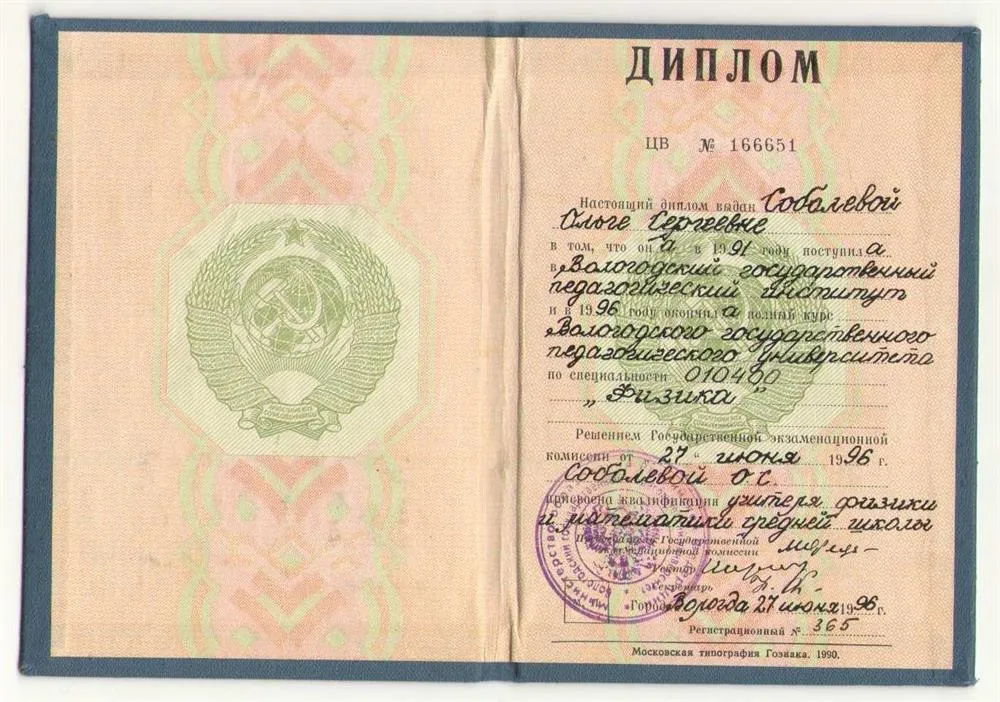 ДИПЛОМ
ЦВ № 166651
Настоящий диплом выдан Соболевой
Ольге Сергеевне
в том, что он а в 1991 году поступил а
в „Вологодский государственный
педагогический институт
и в 1996 году окончил а полный курс
„Вологодского государственного
педагогического университета
по специальности 010400
„Физика"
Решением Государственной экзаменационной
комиссии от „27" июня 1996 г.
Соболевой О.С.
присвоена квалификация учителя физики
и математики средней школы
Председатель Государственной
экзаменационной комиссии
Ректор
Секретарь
Город Вологда 27 июня 1996 г.
Регистрационный № 365
Московская типография Гознака. 1990.